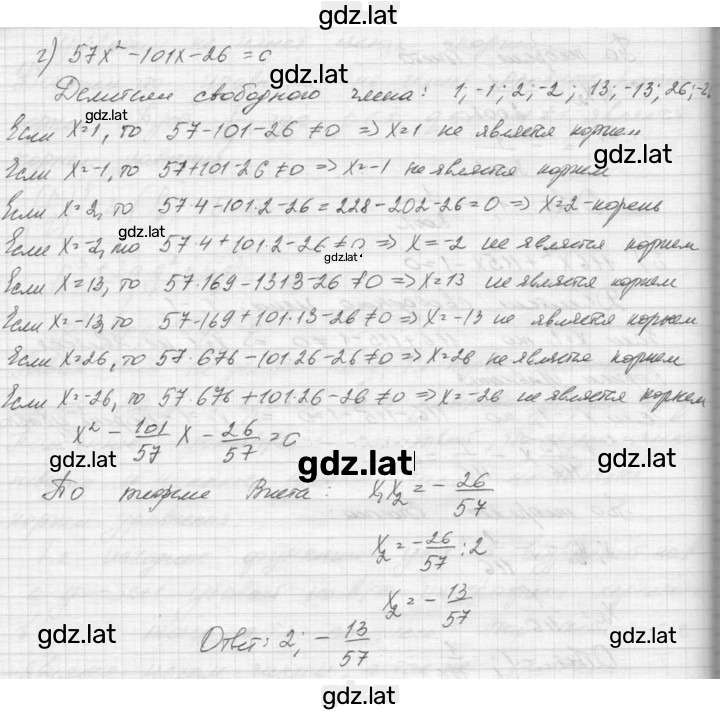 gdz.lat
г) 57x² - 101x - 26 = 0
gdz.lat
Делители свободного члена: 1; -1; 2; -2; 13; -13; 26; -2
gdz.lat
Если x=1, то 57-101-26≠0 => x=1 не является корнем
gdz.lat
Если x=-1, то 57+101-26≠0 => x=-1 не является корнем
Если x=2, то 57·4-101·2-26=228-202-26=0 => x=2-корень
gdz.lat
Если x=-2, то 57·4+101·2-26≠0 => x=-2 не является корнем
gdz.lat
Если x=13, то 57·169-1313-26≠0 => x=13 не является корнем
Если x=-13, то 57·169+101·13-26≠0 => x=-13 не является корнем
Если x=26, то 57·676-101·26-26≠0 => x=26 не является корнем
Если x=-26, то 57·676+101·26-26≠0 => x=-26 не является корнем
x² - 101/57 x - 26/57 = 0
gdz.lat gdz.lat gdz.lat
По теореме Виета: x₁x₂ = -26/57
x₂ = -26/57 : 2
x₂ = -13/57
gdz.lat gdz.lat
Ответ: 2; -13/57
gdz.lat